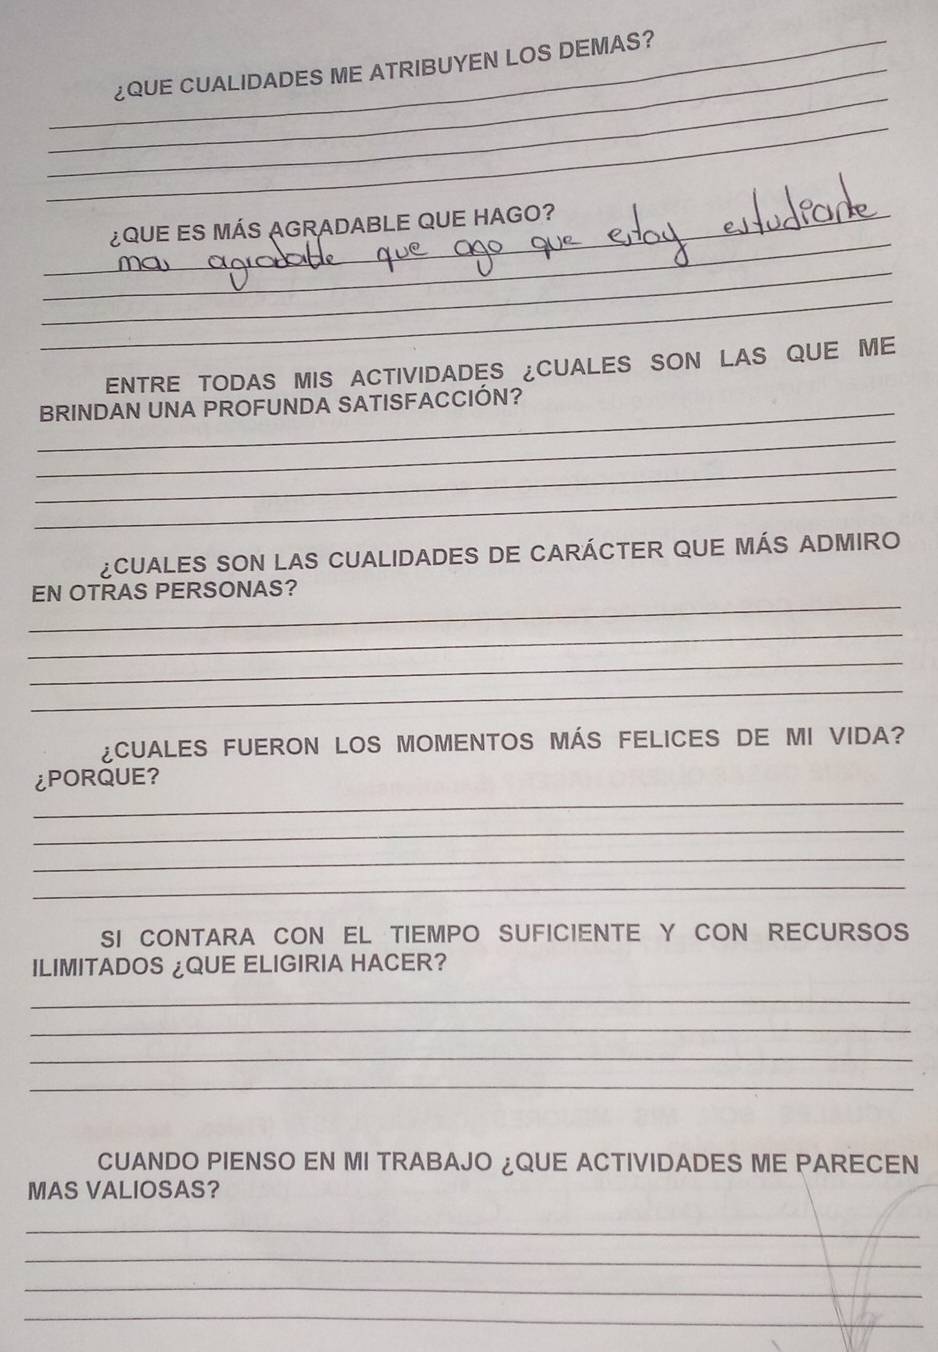 ¿QUE CUALIDADES ME ATRIBUYEN LOS DEMAS?
¿QUE ES MÁS AGRADABLE QUE HAGO?
mas agradable que ago que estoy estudiante
ENTRE TODAS MIS ACTIVIDADES ¿CUALES SON LAS QUE ME
BRINDAN UNA PROFUNDA SATISFACCIÓN?
¿CUALES SON LAS CUALIDADES DE CARÁCTER QUE MÁS ADMIRO
EN OTRAS PERSONAS?
¿CUALES FUERON LOS MOMENTOS MÁS FELICES DE MI VIDA?
¿PORQUE?
SI CONTARA CON EL TIEMPO SUFICIENTE Y CON RECURSOS
ILIMITADOS ¿QUE ELIGIRIA HACER?
CUANDO PIENSO EN MI TRABAJO ¿QUE ACTIVIDADES ME PARECEN
MAS VALIOSAS?